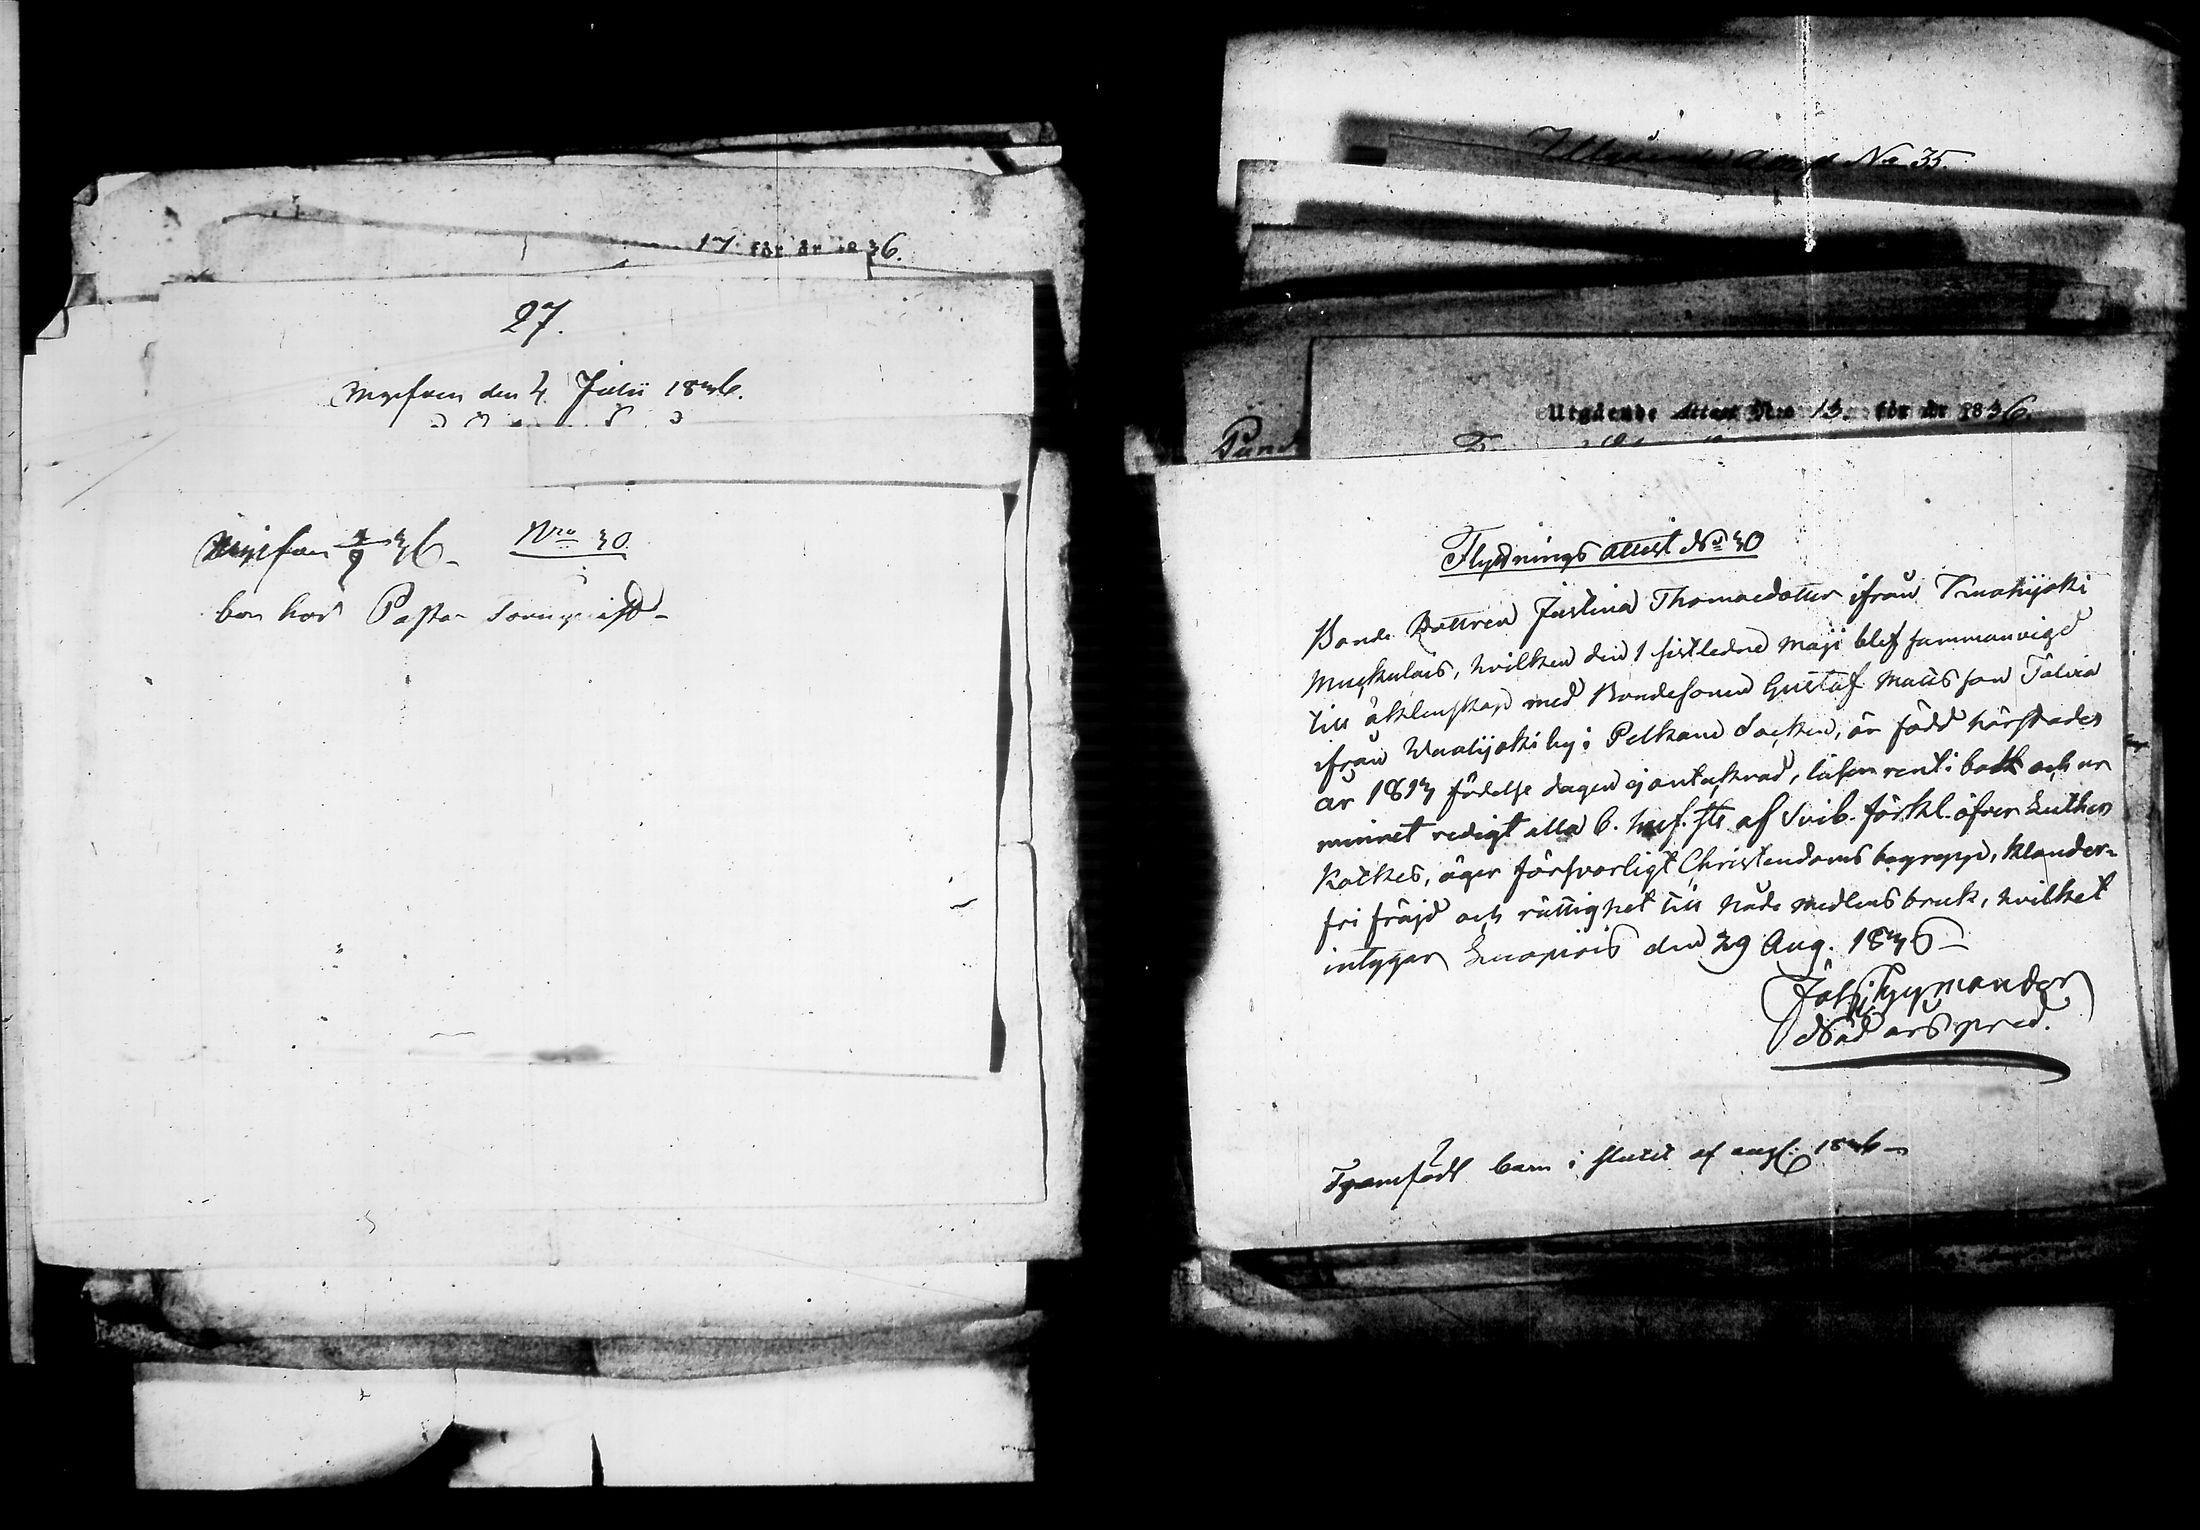 17 för år 1836.
27.
den 4 Julii 1836.
36 - Nro 30
bor hos Pastor
Utgående Attest No 35
Utgående Attest N:o 13 för år 1836.
Flyttnings attest No 30
Bonde Dottren Justina Thomasdotter ifrån Kuohijoki
Myskulais, hvilken den 1 sistledne Maji blef sammanvigd
till äktenskap med Bondesonen Gustaf Matts son Tålvia
ifrån Kuohijoki by i Pelkane Socken, är född härstädes
år 1813 födelse dagen ej antecknad, läser rent i bok och ur
minnet redigt alla C. huf. st. af Svib. förkl. öfver Luther
Katkes, äger försvarligt Christendoms begrepp, klander-
fri fräjd och rättighet till Nåde medlens bruk, hvilket
intygar Luopiois den 29 Aug. 1836 -
Joh. Tyymander
Nåd årspred.
Framfödt barn i slutet af aug. 1836 -